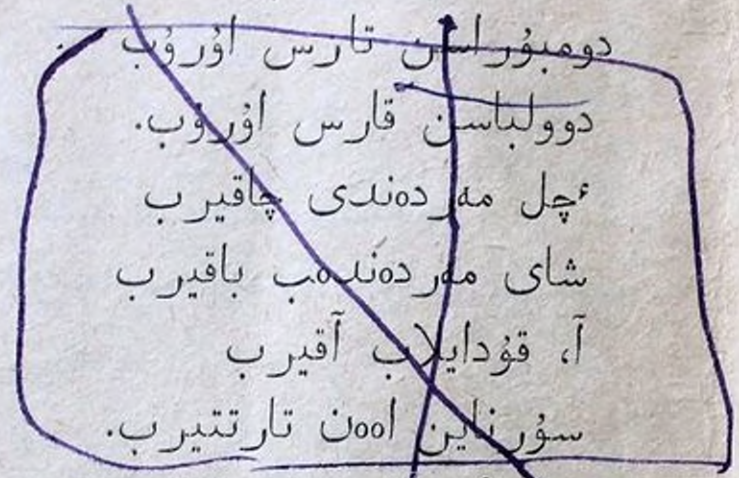 دومبۇراسىن تارس اۇرۇپ
دوولباسىن قارس اۇرۇپ.
ٴچىل مەردەندى چاقىرىپ
شاي مەردەندەپ باقىرىپ
آ، قۇدايلاپ آقىرىپ
سۇرنايىن اەەن تارتتىرىپ.